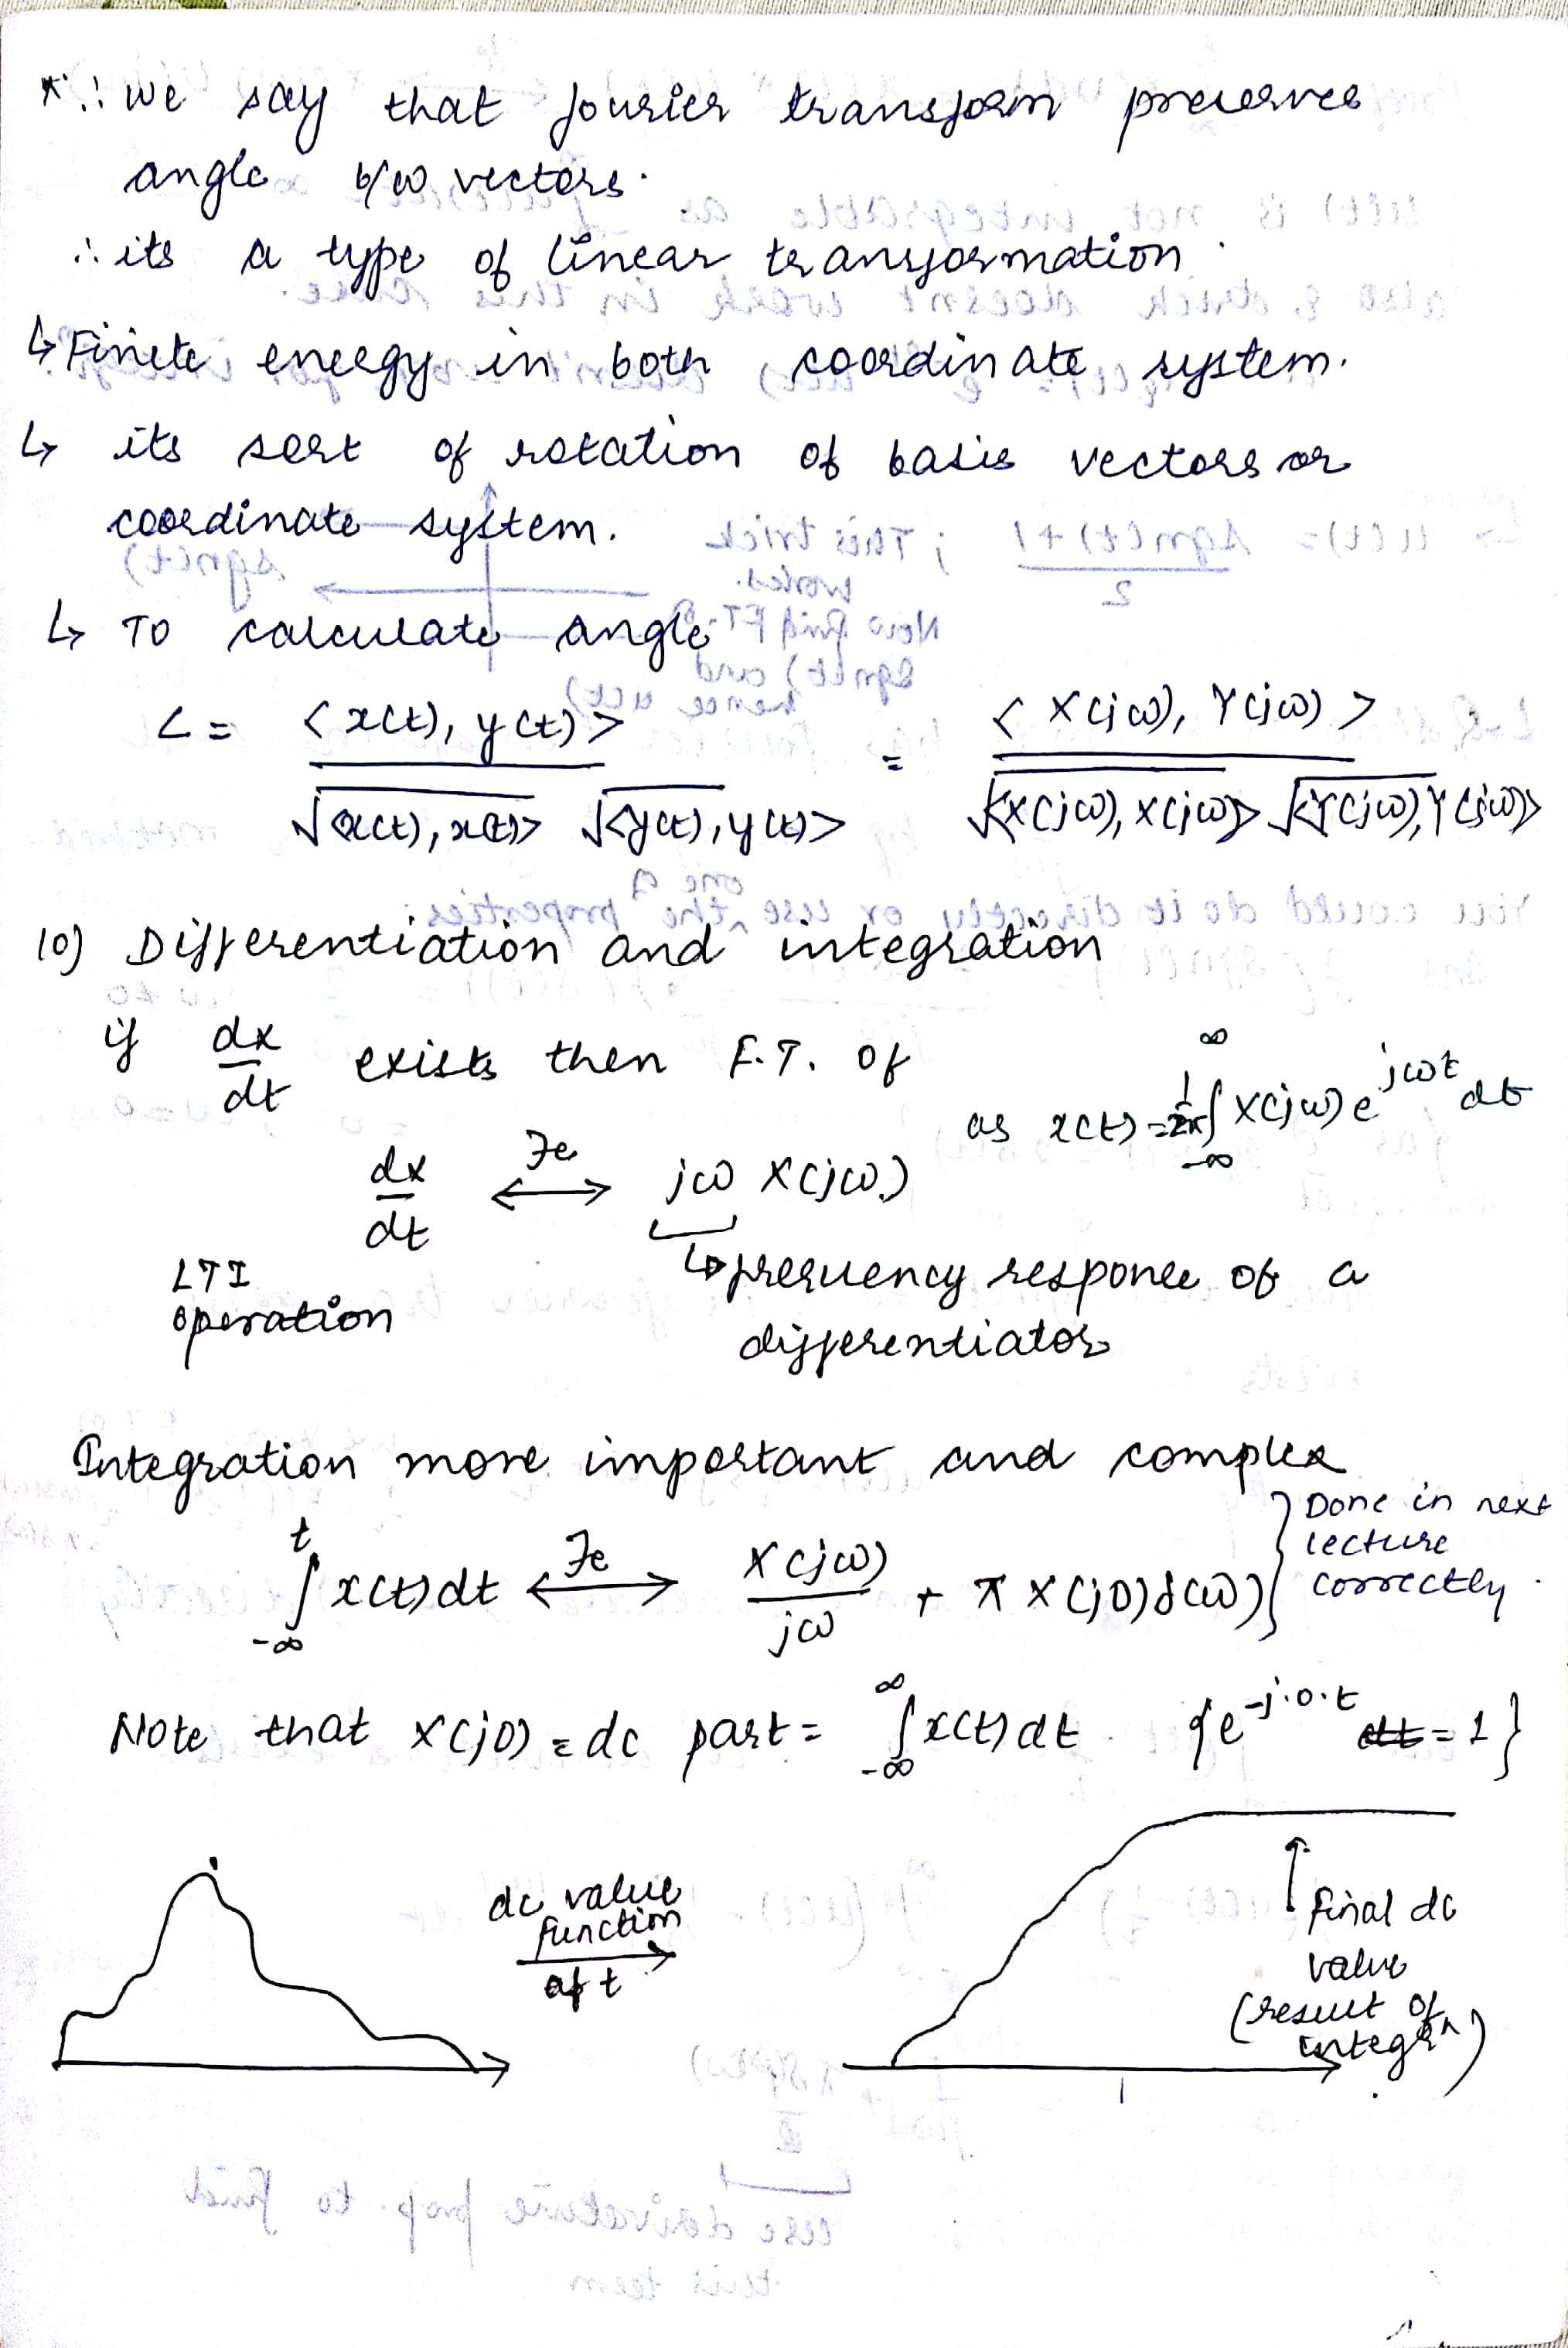 *∴ we say that fourier transform preserves
angle b/w vectors.
∴ its a type of linear transformation.
↳ Finite energy in both coordinate system.
↳ its sort of rotation of basis vectors or
coordinate system.
↳ To calculate angle
∠ = <x(t), y(t)> / √<x(t), x(t)> √<y(t), y(t)> = <X(jω), Y(jω)> / √<X(jω), X(jω)> √<Y(jω), Y(jω)>
10) Differentiation and integration
if dx/dt exists then F.T. of
as x(t) = 1/2π ∫_{-∞}^{∞} X(jω) e^{jωt} dt
dx/dt ⟷ jω X(jω)
LTI
operation
↳ frequency responce of a
differentiator
Integration more important and complex
∫_{-∞}^{t} x(t) dt ⟷ X(jω)/jω + π X(j0) δ(ω)
} Done in next
lecture
correctly.
Note that X(j0) = dc part = ∫_{-∞}^{∞} x(t) dt. {e^{-j.0.t} = 1}
dc value
function
of t
final dc
value
(result of
integrn)